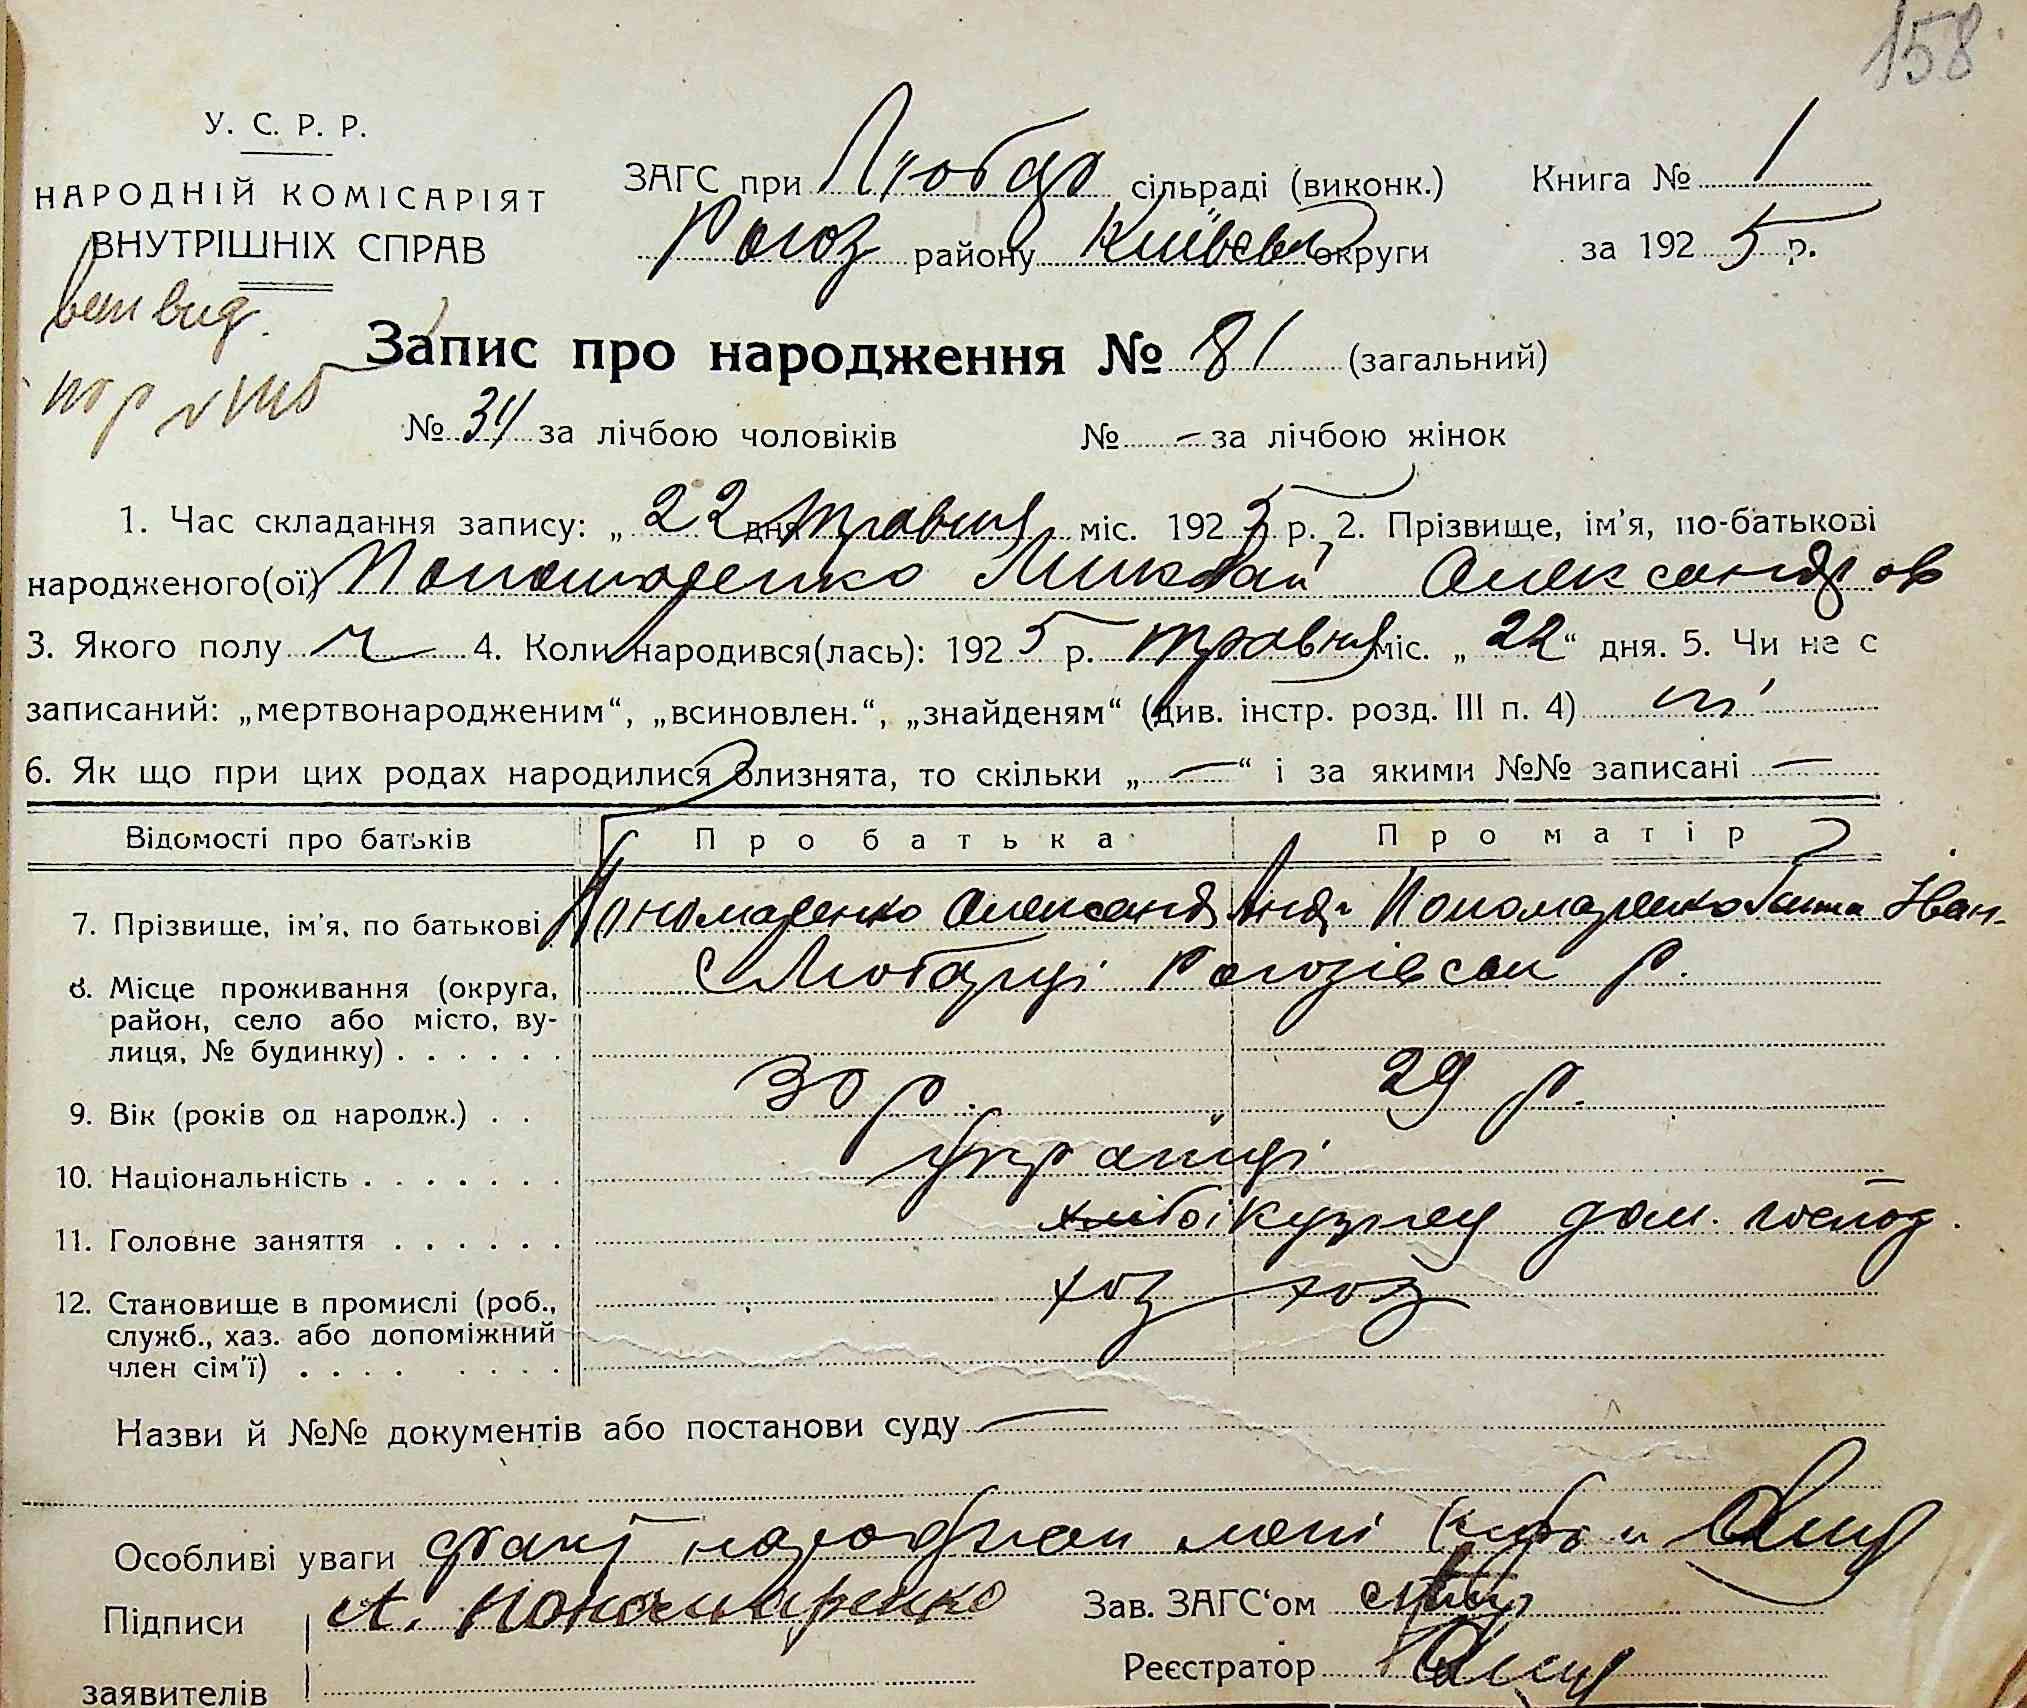 158
У. С. Р. Р.
НАРОДНІЙ КОМІСАРІЯТ
ВНУТРІШНІХ СПРАВ
ЗАГС при Любар сільраді (виконк.)
Рогоз району Київськ округи
Книга № 1
за 1925 р.
Запис про народження № 81 (загальний)
№ 34 за лічбою чоловіків № — за лічбою жінок
1. Час складання запису: „ 22 дня травня міс. 1925 р. 2. Прізвище, ім'я, по-батькові
народженого(ої) Пономаренко Миколай Александров
3. Якого полу ч 4. Коли народився(лась): 1925 р. травня міс. „ 22 “ дня. 5. Чи не є
записаний: „мертвонародженим“, „всиновлен.“, „знайденям“ (див. інстр. розд. III п. 4) ні
6. Як що при цих родах народилися близнята, то скільки „ — “ і за якими №№ записані —
Відомості про батьків Про батька Про матір
7. Прізвище, ім'я, по батькові Пономаренко Олександ Анд Пономаренко Ганна Іван.
8. Місце проживання (округа, с Любарці Рогозівськ р.
район, село або місто, ву-
лиця, № будинку) . . . . . .
9. Вік (років од народж.) . . 30 р. 29 р.
10. Національність . . . . . . . Українці
11. Головне заняття . . . . . . дом. господ.
12. Становище в промислі (роб., хоз хоз
служб., хаз. або допоміжний
член сім'ї) . . . . . . . .
Назви й №№ документів або постанови суду —
Особливі уваги факт народження мені
Підписи А. Пономаренко Зав. ЗАГС'ом
заявителів Реєстратор